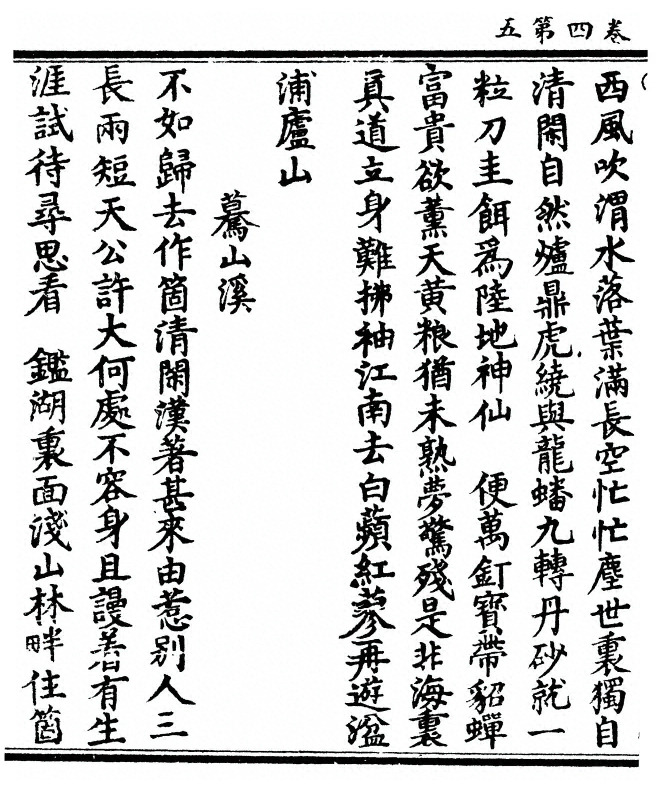 卷四第五
西風吹渭水落葉滿長空忙忙塵世裏獨自
清閑自然爐鼎虎繞與龍蟠九轉丹砂就一
粒刀圭餌爲陸地神仙　便萬釘寶帶貂蟬
富貴欲薰天黃粮猶未熟夢驚殘是非海裏
眞道立身難拂袖江南去白蘋紅蓼再遊湓
浦廬山
驀山溪
不如歸去作箇清閑漢著甚來由惹別人三
長兩短天公許大何處不容身且謾著有生
涯試待尋思看　鑑湖裏面淺山林畔住箇